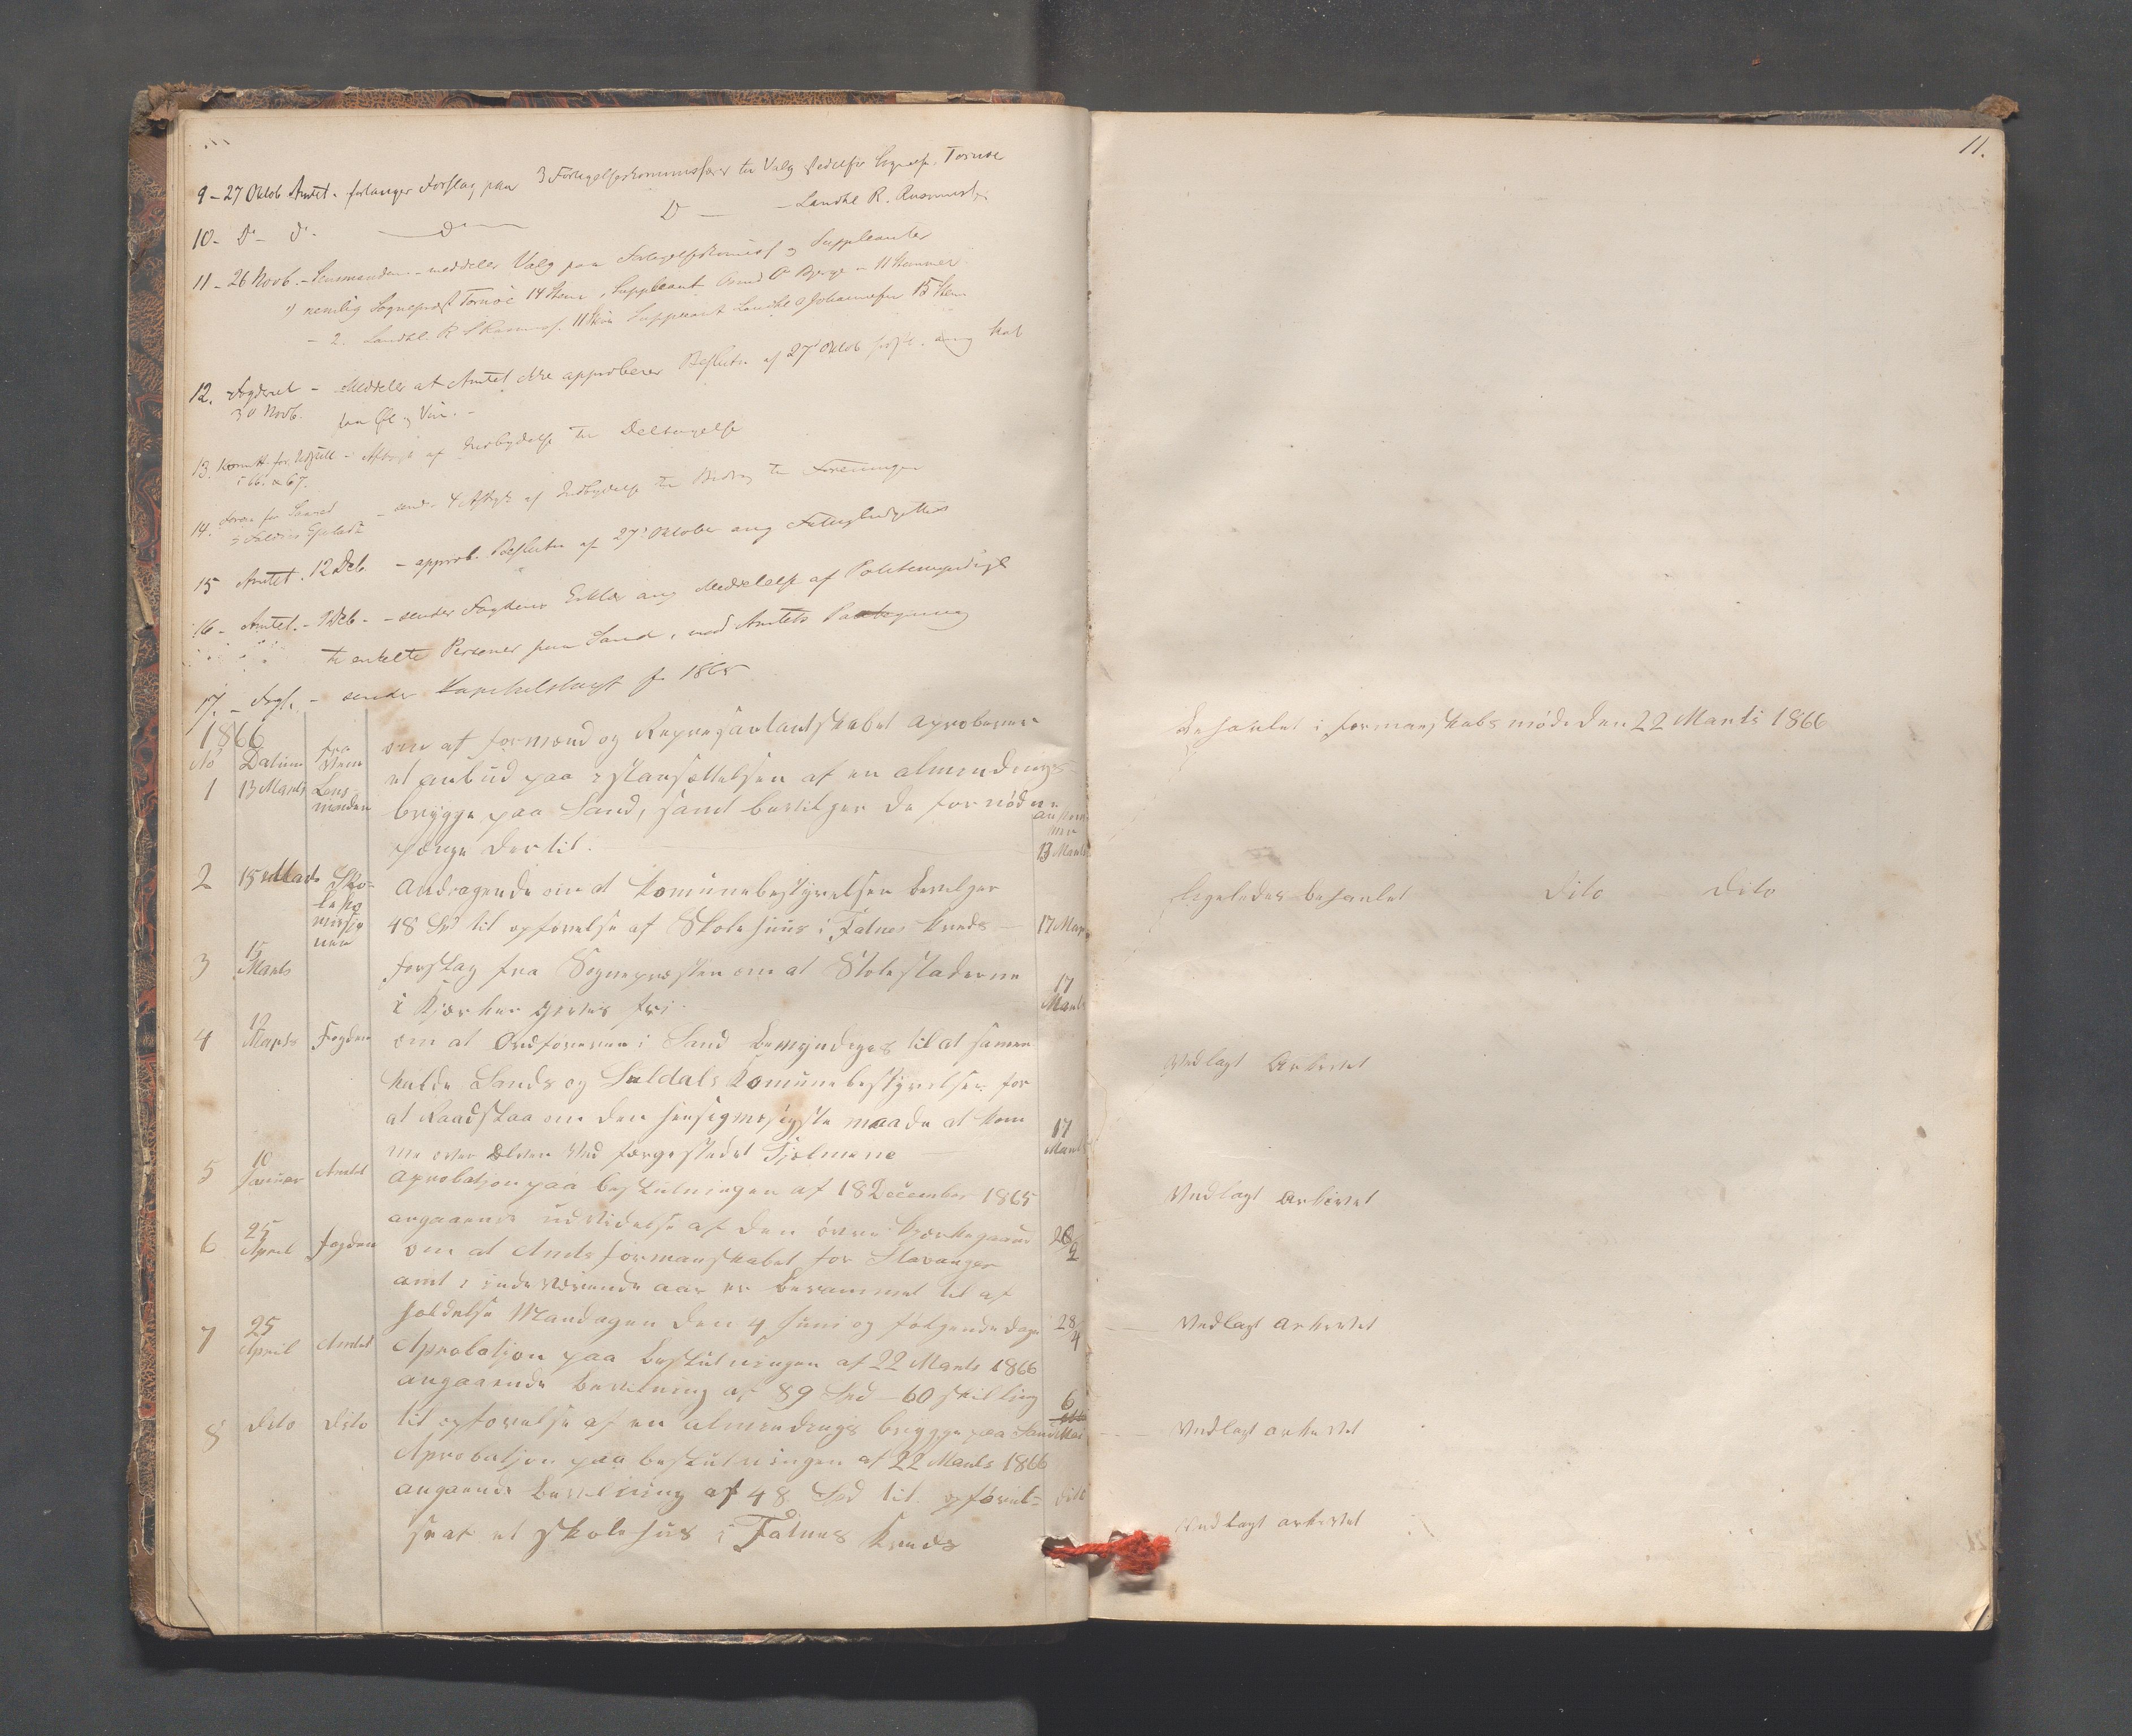 11.
9 – 27 Oktob Amtet – forlanger Forslag paa 3 Forligelseskommissærer til Valg Sognepr. Tornöe
10 – Do – do – do – Do – Landhl R.
11 – 26 Novb. – Lensmanden – meddeler Valg paa Forligelseskommiss og Suppleanter
1) nemlig Sognepræst Tornöe 14 Stem, Suppleant Berge – 11 Stemmer
– 2. Landhl R 11 Stem Suppleant Landhl Johannesen 15 Stem
12. Fogderiet – Meddeler at Amtet ikke approberer Beslutn af 27de Oktob ang Skat
30 Novb. paa Øl og Vin. –
13. Komitt. for – Afskrift af Indbydelse til Deltagelse
i 66 & 67.
14. Foren for – sender 4 Afskr af Indbydelse til Bidrag til Foreningen
15 Amtet. 12 Deb. – approb. Beslutn af 27de Oktober ang
16 – Amtet. – Deb. – sender Fogdens Erklær ang Meddelelse af
til enkelte Personer paa Sand, med Amtets Paategning
17. – Fogd. – sender Kapitelstaxt for 1865
1866
No Datum fra Hvem
1 13 Marts Lensmanden om at formænd og Repræsentantskabet aproberer
et anbud paa istansættelsen af en almendings
brygge paa Sand, samt bevilger de fornödne
penge dertil. – 13 Marts
Behanlet i formanskabsmöde den 22 Marts 1866
2 15 Marts Skolekomissionen Andragende om at Komunebestyrelsen bevilger
48 Spd til opförelse af Skolehuus i Falnes Kreds – 17 Mar
ligeledes behanlet Dito Dito
3 15 Marts forslag fra Sognepræsten om at Stolestaderne
i Kjærker givves fri. 17 Marts
4 12 Marts Fogden om at Ordföreren i Sand bemyndiges til at sammen
kalde Sands og Suldals Komunebestyrelser for
at Raadslaa om den hensigmæsigste maade at kom
me over Elven ved færgestedet 17 Marts
Vedlagt Arkivet
5 10 Januar Amtet Aprobatsjon paa beslutningen af 18 December 1865
angaaende udvidelse af den övre Kjærkegaard 28/2
Vedlagt arkivet
6 25 April Fogden om at Amtsformanskabet for Stavanger
amt i indeværende aar er berammet til af
holdelse Mandagen den 4 Juni og fölgende dage 28/4
Vedlagt arkivet
7 25 April Amtet Aprobatsjon paa beslutningen af 22 Marts 1866
angaaende bevilning af 89 Spd – 60 skilling
til opförelse af en almendings brygge paa Sand 6 Mai
Vedlagt arkivet
8 Dito Dito Aprobatsjon paa beslutningen af 22 Marts 1866
angaaende bevilning af 48 Spd til opförel=
se af et skolehus i Falnes Kreds dito
Vedlagt arkivet